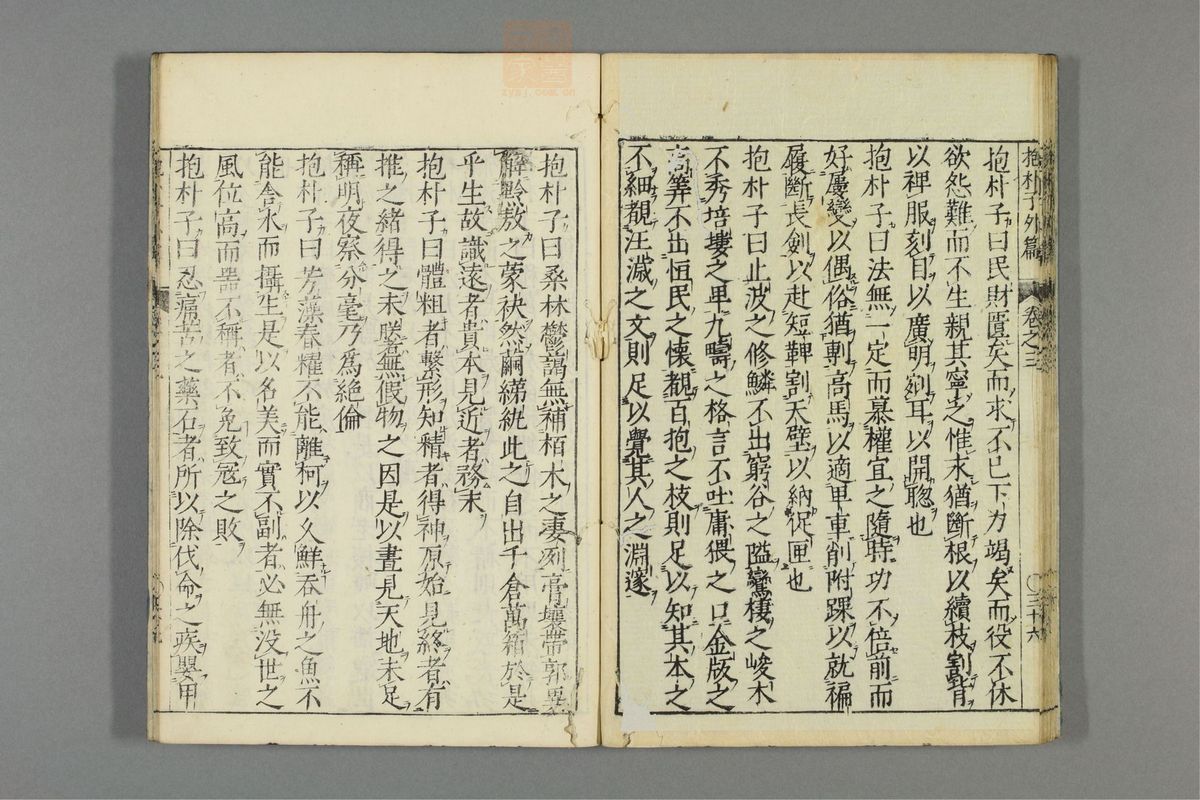 抱朴子外篇 卷之三 〇三十六
抱朴子曰民財匱矣而求不已下力竭矣而役不休
欲怨難而不生親其寧之惟末猶斷根以續枝割背
以裨服刻目以廣明剜耳以開聡也
抱朴子曰法無一定而慕權宜之隨時功不倍前而
好屢變以偶俗猶剸高馬以適卑車削附踝以就褊
履斷長劍以赴短鞞割天壁以納促匣也
抱朴子曰止波之修鱗不出窮谷之隘鸞棲之峻木
不秀培塿之卑九疇之格言不吐庸猥之口金版之
高筭不出恒民之懐覩百抱之枝則足以知其本之
不細覩汪濊之文則足以覺其人之淵邃
抱朴子曰桑林鬱藹無補栢木之凄列膏壤帶郭無
解黔敖之蒙袂然繭綈統此之自出千倉萬箱於是
乎生故識遠者貴本見近者務末
抱朴子曰體粗者繫形知精者得神原始見終者有
推之緒得之未眹無假物之因是以晝見天地未足
稱明夜察分毫乃爲絶倫
抱朴子曰芳藻春耀不能離柯以久鮮吞舟之魚不
能舎水而攝生是以名美而實不副者必無没世之
風位高而噐不稱者不免致冦之敗
抱朴子曰忍痛苦之藥石者所以除伐命之疾嬰甲
zysj.com.cn